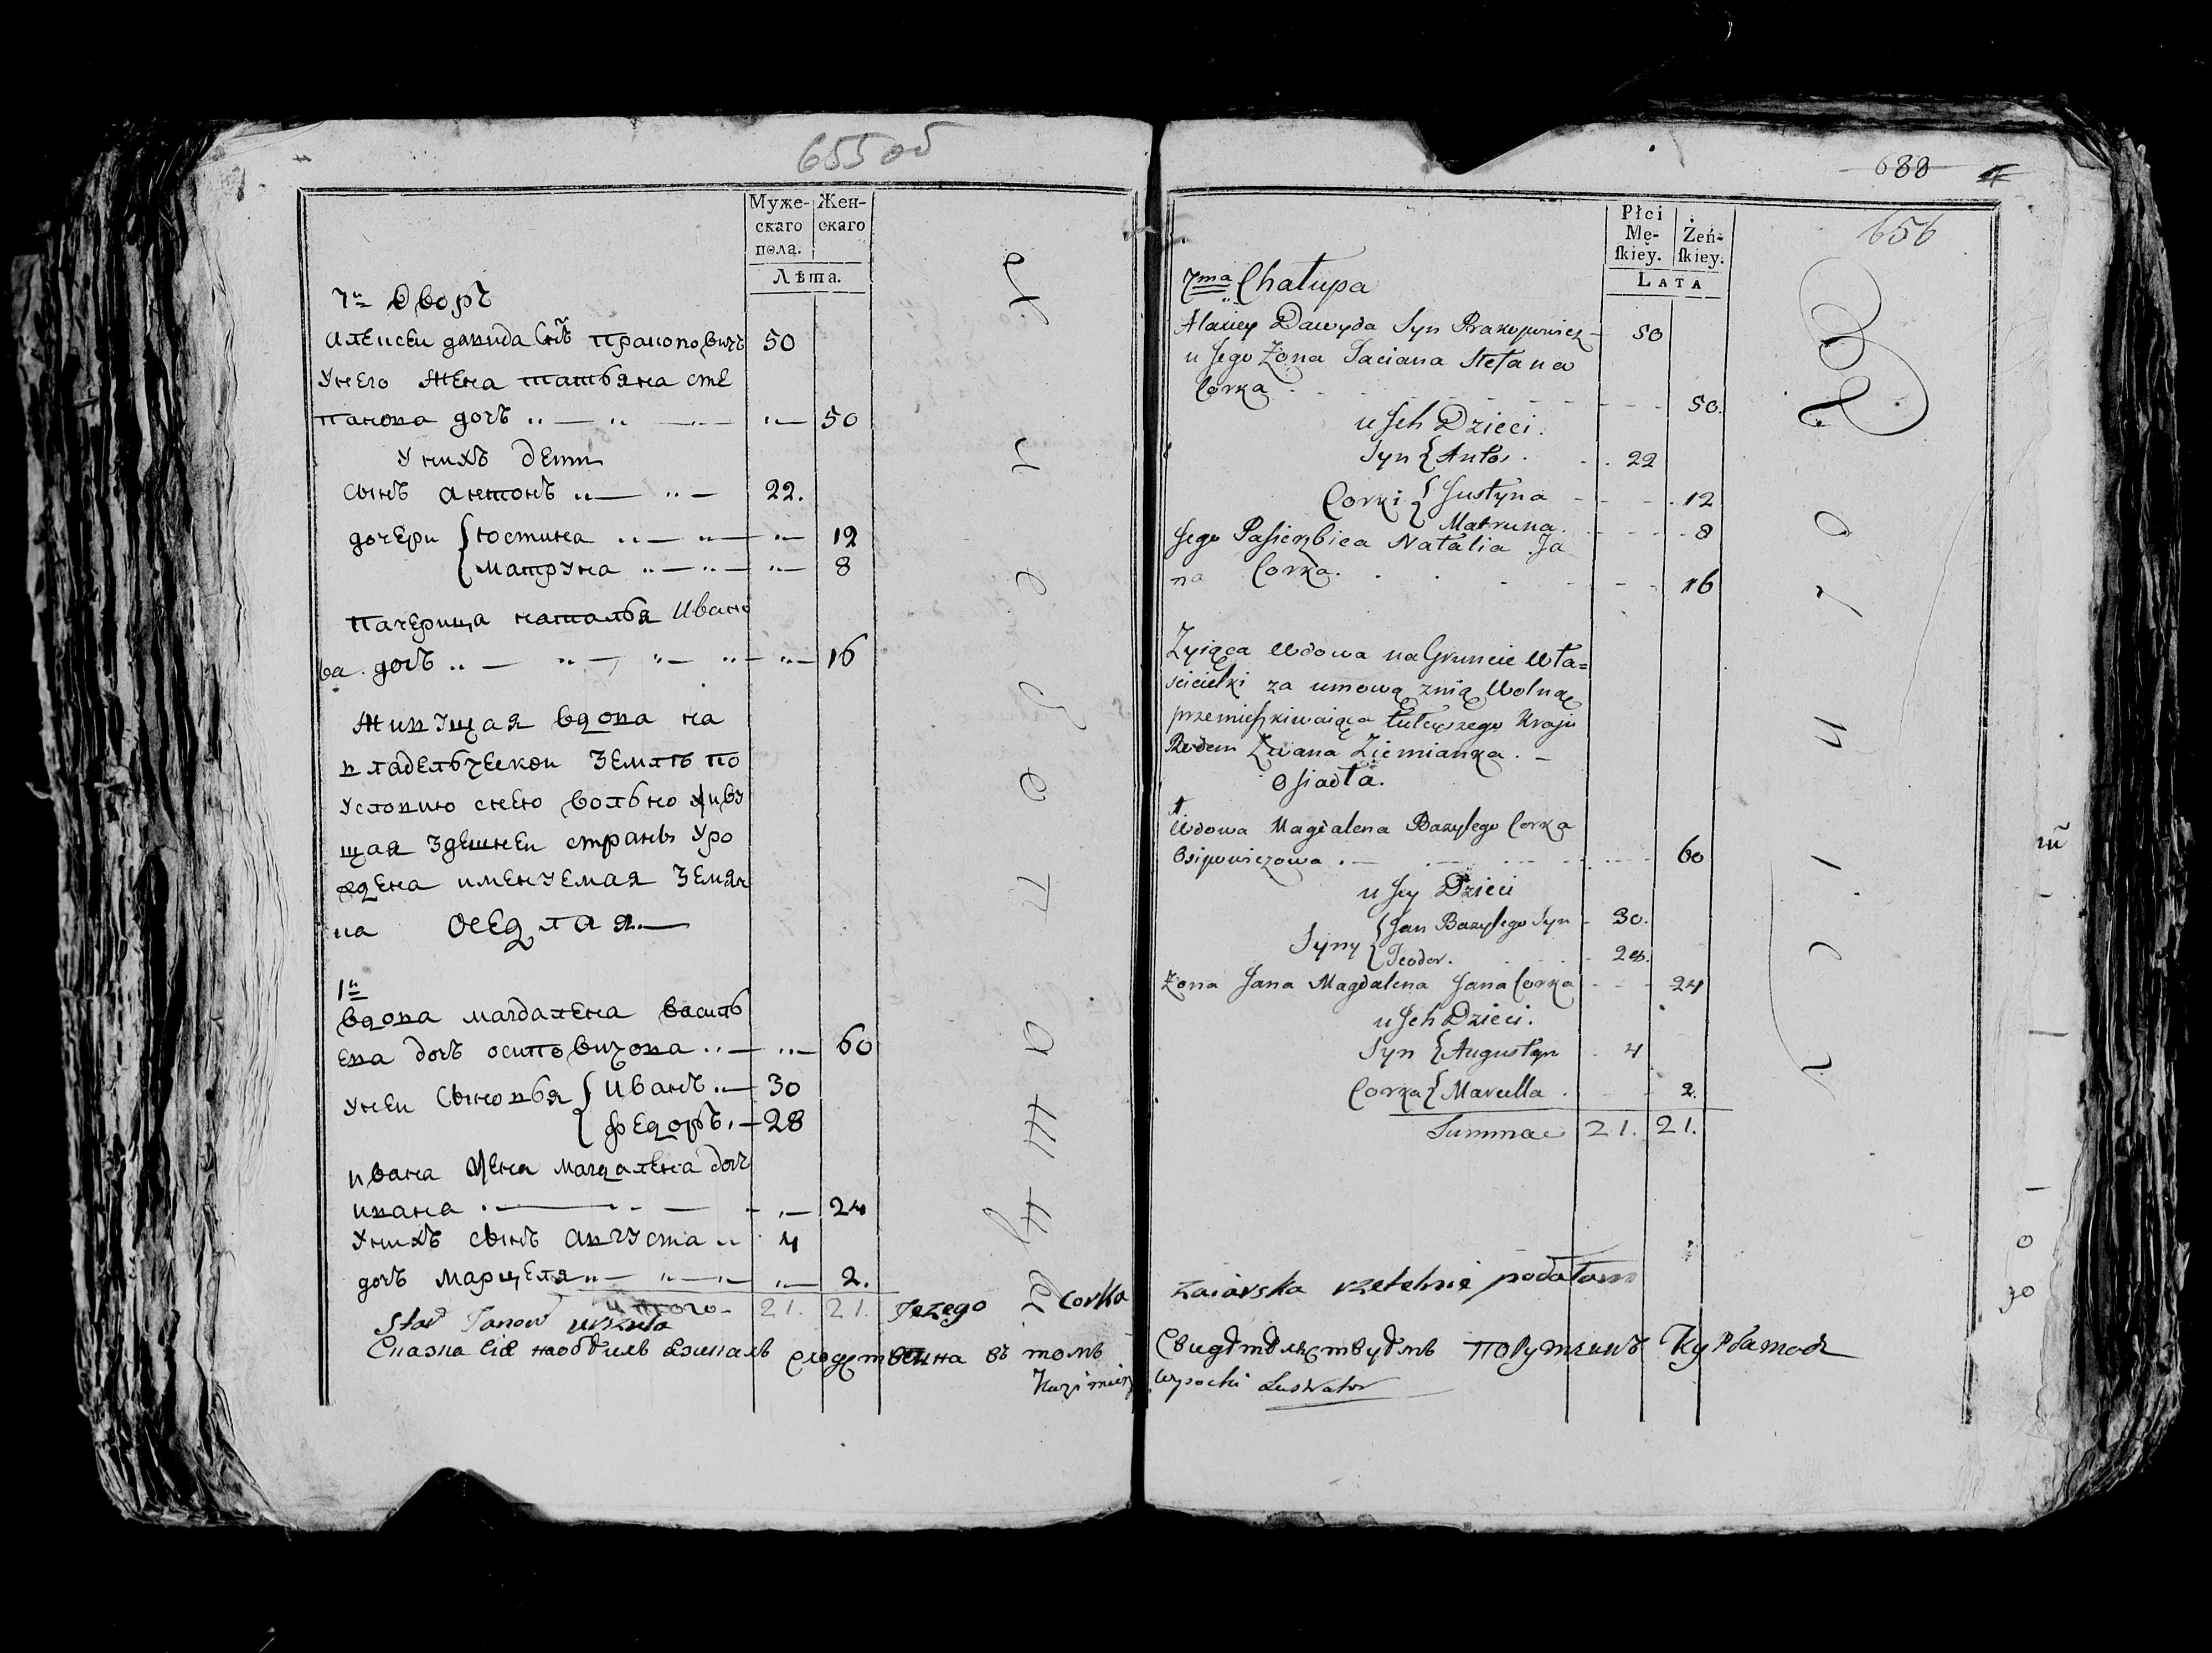 655 об
Муже-
скаго
пола.
Жен-
скаго
Лѣта.
7й Дворъ
Алексеи давида Снъ Пракоповичъ 50
У него жена татьяна сте
панова дочъ 50
У нихъ дети
сынъ антонъ 22.
дочери юстина 12
матруна 8
Пачерица наталья Ивано
ва дочъ 16
Живущая вдова на
владельческои Земле по
условию снею вольно живу
щая здешнеи страны уро
жденa именуемая Земян
ка оседлая
1й
вдова магдалена василь
ева дочъ осиповичова 60
У неи Сыновья Иванъ 30
федоръ 28
ивана жена магдалена дочъ
ивана 24
У нихъ сынъ августа 4
дочъ марцеля 2.
итого 21. 21.
Jezego Corka
в томъ
Kazimierz
688
656
Płci
Mę-
ſkiey.
Żeń-
ſkiey.
LATA
7ma Chałupa
Alaxiey Dawyda Syn Prakopowicz 50
u Jego Żona Taciana Stefana
Corka 50.
u Jch Dzieci.
Syn Antoś 22
Corki Justyna 12
Matruna 8
Jego Pasierzbica Natalia Ja
na Corka. 16
Żyiąca Wdowa na Gruncie Wła=
scicielki za umową znią Wolną
przemieszkiwaiąca tuteyszego Kraju
Rodem Zwana Ziemianka.
Osiadła.
1
Wdowa Magdalena Bazylego Corka
Osipowiczowa 60
u Jey Dzieci
Syny Jan Bazylego Syn 30.
Teodor. 28.
Żona Jana Magdalena Jana Corka 24
u Jch Dzieci.
Syn Augustyn 4
Corka Marcella 2.
Summa 21. 21.
rzetelnie podałam
Свидетелствуетъ порутчикъ Курбатов
Wysocki Lustrator